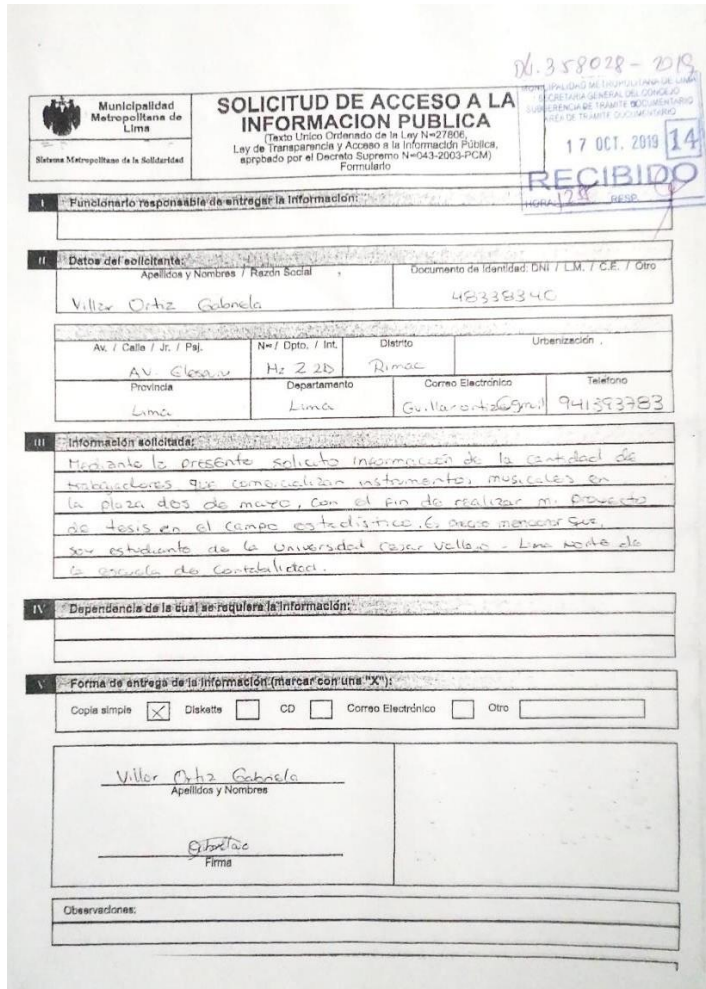 DG. 358028 - 2019
MUNICIPALIDAD METROPOLITANA DE LIMA
SECRETARIA GENERAL DEL CONCEJO
SUBGERENCIA DE TRAMITE DOCUMENTARIO
AREA DE TRAMITE DOCUMENTARIO
17 OCT. 2019 14
RECIBIDO
HORA RESP.
Municipalidad
Metropolitana de
Lima
Sistema Metropolitano de la Solidaridad
SOLICITUD DE ACCESO A LA
INFORMACION PUBLICA
(Texto Unico Ordenado de la Ley N=27806,
Ley de Transparencia y Acceso a la Información Pública,
aprobado por el Decreto Supremo N=043-2003-PCM)
Formulario
I Funcionario responsable de entregar la Información:
II Datos del solicitante:
Apellidos y Nombres / Razón Social
Documento de Identidad: DNI / L.M. / C.E. / Otro
Villar Ortiz Gabriela
48338340
Av. / Calle / Jr. / Psj. N= / Dpto. / Int. Distrito Urbanización
AV. Mz Z 2D Rimac
Provincia Departamento Correo Electrónico Teléfono
Lima Lima 941393783
III Información solicitada:
Mediante la presente solicito información de la cantidad de
trabajadores que comercializan instrumentos musicales en
la plaza dos de mayo, con el fin de realizar mi proyecto
de tesis en el campo estadístico. Es preciso mencionar que,
soy estudiante de la Universidad Cesar Vallejo - Lima Norte de
la escuela de Contabilidad.
IV Dependencia de la cual se requiere la Información:
V Forma de entrega de la Información (marcar con una "X"):
Copia simple X Diskette CD Correo Electrónico Otro
Villar Ortiz Gabriela
Apellidos y Nombres
Firma
Observaciones: